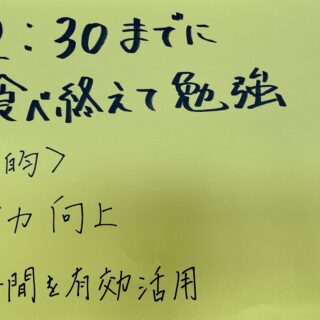 :30までに
食べ終えて勉強
的>
力向上
間を有効活用